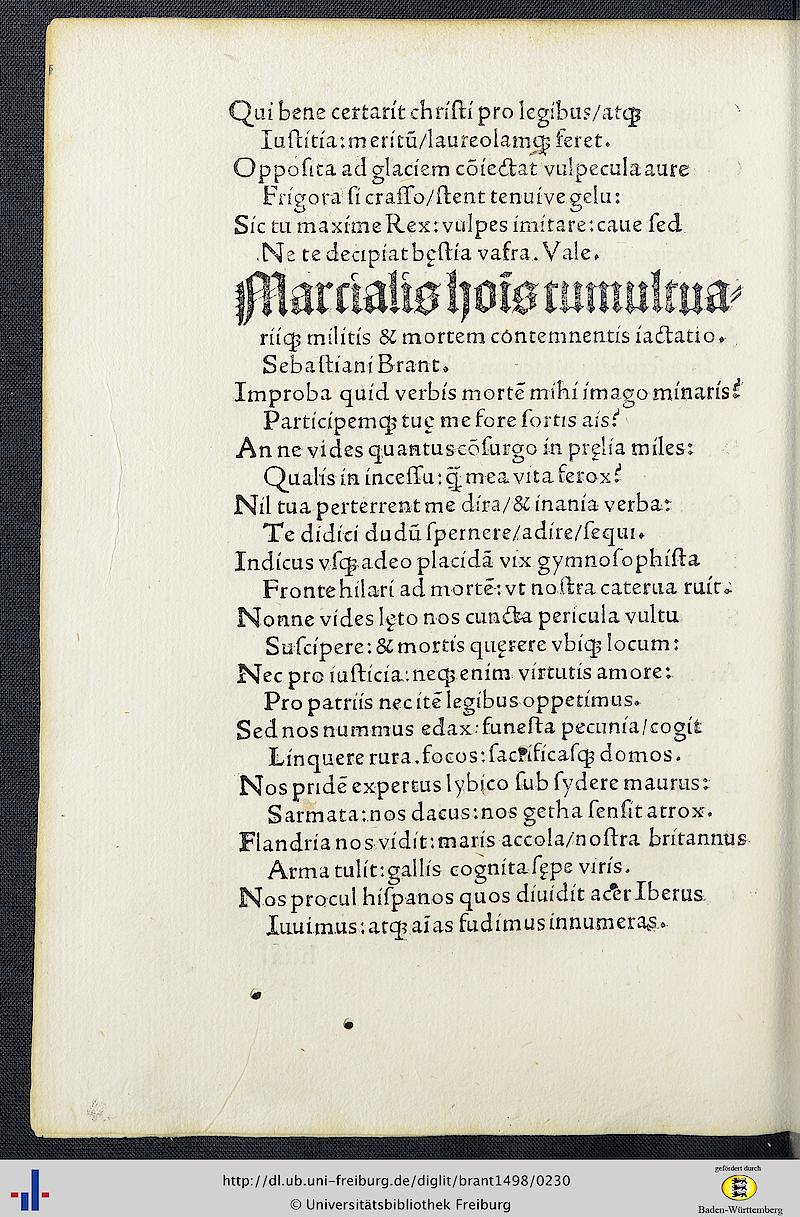 Qui bene certarit chriſti pro legibus/atqꝫ
Iuſtitia: meritū/laureolamqꝫ feret.
Oppoſita ad glaciem cōiectat vulpecula aure
Frigora ſi craſſo/ſtent tenuive gelu:
Sic tu maxime Rex: vulpes imitare: caue ſed
Ne te decipiat bęſtia vafra. Vale.
Marcialis hoīs tumultua⸗
riiqꝫ militis & mortem contemnentis iactatio.
Sebaſtiani Brant.
Improba quid verbis mortē mihi imago minaris?
Participemqꝫ tuę me fore ſortis ais?
An ne vides quantus cōſurgo in pręlia miles:
Qualis in inceſſu: q̄ mea vita ferox?
Nil tua perterrent me dira/& inania verba:
Te didici dudū ſpernere/adire/ſequi.
Indicus vſqꝫ adeo placidā vix gymnoſophiſta
Fronte hilari ad mortē: vt noſtra caterua ruit.
Nonne vides lęto nos cuncta pericula vultu
Suſcipere: & mortis quęrere vbiqꝫ locum:
Nec pro iuſticia: neqꝫ enim virtutis amore:
Pro patriis nec itē legibus oppetimus.
Sed nos nummus edax: funeſta pecunia/cogit
Linquere rura. focos: ſacrificaſqꝫ domos.
Nos pridē expertus lybico ſub ſydere maurus:
Sarmata: nos dacus: nos getha ſenſit atrox.
Flandria nos vidit: maris accola/noſtra britannus
Arma tulit: gallis cognita ſępe viris.
Nos procul hiſpanos quos diuidit acer Iberus
Iuuimus: atqꝫ aīas fudimus innumeras.
http://dl.ub.uni-freiburg.de/diglit/brant1498/0230
© Universitätsbibliothek Freiburg
gefördert durch
Baden-Württemberg